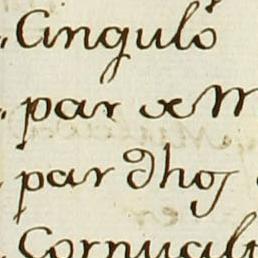 Cingulo
par de M
par dhos
Cornual